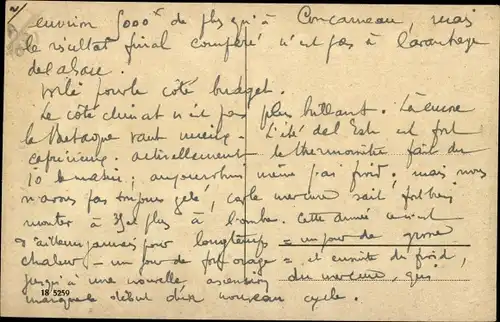 2/
environ 5000 de plus qu'à Concarneau, mais
le résultat final comparé n'est pas à l'avantage
de l'Alsace.
Voilà pour le côté budget.
Le côté climat n'est pas plus brillant. Là encore
la Bretagne vaut mieux. L'été de l'Est est fort
capricieux. Actuellement le thermomètre fait du
10 le matin ; aujourd'hui même j'ai froid ; mais nous
n'avons pas toujours gelé, car le mercure sait fort bien
monter à 35 et plus à l'ombre. Cette année ce n'est
d'ailleurs jamais pour longtemps = un jour de grosse
chaleur - un jour de fort orage = et ensuite du froid,
jusqu'à une nouvelle ascension du mercure, qui
marque le début d'un nouveau cycle.
18 5259